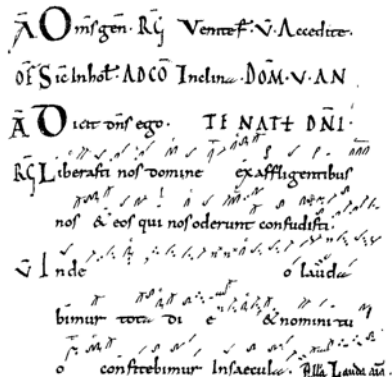 Ā Om̄s gen̄. RḠ Venite f̄. V̄. Accedite.
OF̄ Sic In hol̄. AD CŌ Inclina. DOM̄. V. AN
Ā Dicit dn̄s ego. TE NAT DN̄I.
RḠ Liberasti nos domine ex affligentibus
nos & eos qui nos oderunt confudisti.
V̄ In de o lauda
bimur tota di e & nomini tu
o confitebimur In saecula. All̄a Lauda